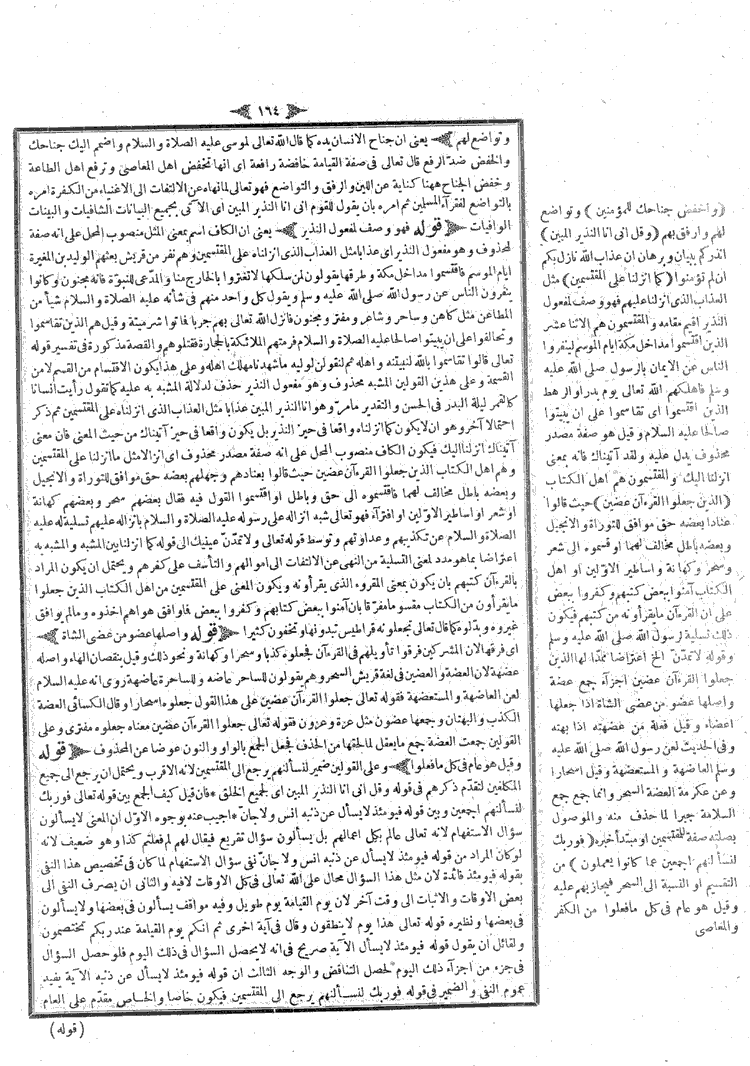 ﴿ ١٦٤ ﴾
وتواضع لهم ﴾ يعنى ان جناح الانسان يده كما قال الله تعالى لموسى عليه الصلاة والسلام واضمم اليك جناحك
والخفض ضد الرفع قال تعالى فى صفة القيامة خافضة رافعة اى انها تخفض اهل المعاصى وترفع اهل الطاعة
وخفض الجناح ههنا كناية عن اللين والرفق والتواضع فهو تعالى لما نهاه عن الالتفات الى الاغنياء من الكفرة امره
بالتواضع لفقرآء المسلمين ثم امره بان يقول للقوم انى انا النذير المبين اى الآتى بجميع البيانات الشافيات والبينات
الوافيات ﴿ قوله فهو وصف لمفعول النذير ﴾ يعنى ان الكاف اسم بمعنى المثل منصوب المحل على انه صفة
لمحذوف وهو مفعول النذير اى عذابا مثل العذاب الذى انزلناه على المقتسمين وهم نفر من قريش بعثهم الوليد بن المغيرة
ايام الموسم فاقتسموا مداخل مكة وطرقها يقولون لمن سلكها لا تغتروا بالخارج منا والمدعى للنبوة فانه مجنون وكانوا
ينفرون الناس عن رسول الله صلى الله عليه وسلم ويقول كل واحد منهم فى شأنه عليه الصلاة والسلام شيأ من
المطاعن مثل كاهن وساحر وشاعر ومفتر ومجنون فانزل الله تعالى بهم خزيا فماتوا شر ميتة وقيل هم الذين تقاسموا
وتحالفوا على ان يبيتوا صالحا عليه الصلاة والسلام فرمتهم الملائكة بالحجارة فقتلوهم والقصة مذكورة فى تفسير قوله
تعالى قالوا تقاسموا بالله لنبيتنه واهله ثم لنقولن لوليه ما شهدنا مهلك اهله وعلى هذا يكون الاقتسام من القسم لا من
القسمة وعلى هذين القولين المشبه محذوف وهو مفعول النذير حذف لدلالة المشبه به عليه كما تقول رأيت انسانا
كالقمر ليلة البدر فى الحسن والتقدير ما مر وهو انا النذير المبين عذابا مثل العذاب الذى انزلناه على المقتسمين ثم ذكر
احتمالا آخر وهو ان لا يكون كما انزلناه واقعا فى حيز النذير بل يكون واقعا فى حيز آتيناك من حيث المعنى فان معنى
آتيناك انزلنا اليك فيكون الكاف منصوب المحل على انه صفة مصدر محذوف اى انزالا مثل ما انزلنا على المقتسمين
وهم اهل الكتاب الذين جعلوا القرءآن عضين حيث قالوا بعنادهم وجهلهم بعضه حق موافق للتوراة والانجيل
وبعضه باطل مخالف لهما فاقتسموه الى حق وباطل او اقتسموا القول فيه فقال بعضهم سحر وبعضهم كهانة
او شعر او اساطير الاولين او افترآء فهو تعالى شبه انزاله على رسوله عليه الصلاة والسلام بانزاله عليهم تسلية له عليه
الصلاة والسلام عن تكذيبهم وعداوتهم وتوسط قوله تعالى ولا تمدن عينيك الى قوله كما انزلنا بين المشبه والمشبه به
اعتراضا بما هو مدد لمعنى التسلية من النهى عن الالتفات الى اموالهم والتأسف على كفرهم ويحتمل ان يكون المراد
بالقرءآن كتبهم بان يكون بمعنى المقروء الذى يقرأونه ويكون المعنى على المقتسمين من اهل الكتاب الذين جعلوا
ما يقرأون من الكتاب مقسوما مفرقا بان آمنوا ببعض كتابهم وكفروا ببعض فما وافق هواهم اخذوه وما لم يوافق
غيروه وبدلوه كما قال تعالى تجعلونه قراطيس تبدونها وتخفون كثيرا ﴿ قوله واصلها عضو من عضى الشاة ﴾
اى فرقها لان المشركين فرقوا تأويلهم فى القرءآن فجعلوه كذبا وسحرا وكهانة ونحو ذلك وقيل بنقصان الهاء واصله
عضهة لان العضة والعضين فى لغة قريش السحر وهم يقولون للساحر عاضه وللساحرة عاضهة روى انه عليه السلام
لعن العاضهة والمستعضهة فقوله تعالى جعلوا القرءآن عضين على هذا القول جعلوه اسحارا وقال الكسائى العضة
الكذب والبهتان وجمعها عضون مثل عزة وعزون فقوله تعالى جعلوا القرءآن عضين معناه جعلوه مفترى وعلى
القولين جمعت العضة جمع ما يعقل لما لحقها من الحذف فجعل الجمع بالواو والنون عوضا عن المحذوف ﴿ قوله
وقيل هو عام فى كل ما فعلوا ﴾ وعلى القولين ضمير لنسألنهم يرجع الى المقتسمين لانه الاقرب ويحتمل ان يرجع الى جميع
المكلفين لتقدم ذكرهم فى قوله وقل انى انا النذير المبين اى لجميع الخلق * فان قيل كيف الجمع بين قوله تعالى فوربك
لنسألنهم اجمعين وبين قوله فيومئذ لا يسأل عن ذنبه انس ولا جان * اجيب عنه بوجوه الاول ان المعنى لا يسألون
سؤال الاستفهام لانه تعالى عالم بكل اعمالهم بل يسألون سؤال تقريع فيقال لهم لم فعلتم كذا وهو ضعيف لانه
لو كان المراد من قوله فيومئذ لا يسأل عن ذنبه انس ولا جان نفى سؤال الاستفهام لما كان فى تخصيص هذا النفى
بقوله فيومئذ فائدة لان مثل هذا السؤال محال على الله تعالى فى كل الاوقات لا فيه والثانى ان يصرف النفى الى
بعض الاوقات والاثبات الى وقت آخر لان يوم القيامة يوم طويل وفيه مواقف يسألون فى بعضها ولا يسألون
فى بعضها ونظيره قوله تعالى هذا يوم لا ينطقون وقال فى آية اخرى ثم انكم يوم القيامة عند ربكم تختصمون
ولقائل ان يقول قوله فيومئذ لا يسأل الآية صريح فى انه لا يحصل السؤال فى ذلك اليوم فلو حصل السؤال
فى جزء من اجزآء ذلك اليوم لحصل التناقض والوجه الثالث ان قوله فيومئذ لا يسأل عن ذنبه الآية يفيد
عموم النفى والضمير فى قوله فوربك لنسألنهم يرجع الى المقتسمين فيكون خاصا والخاص مقدم على العام
(قوله)
(واخفض جناحك للمؤمنين) وتواضع
لهم وارفق بهم (وقل انى انا النذير المبين)
انذركم ببيان وبرهان ان عذاب الله نازل بكم
ان لم تؤمنوا (كما انزلنا على المقتسمين) مثل
العذاب الذى انزلنا عليهم فهو وصف لمفعول
النذير اقيم مقامه والمقتسمون هم الاثنا عشر
الذين اقتسموا مداخل مكة ايام الموسم لينفروا
الناس عن الايمان بالرسول صلى الله عليه
وسلم فاهلكهم الله تعالى يوم بدر او الرهط
الذين اقتسموا اى تقاسموا على ان يبيتوا
صالحا عليه السلام وقيل هو صفة مصدر
محذوف يدل عليه ولقد آتيناك فانه بمعنى
انزلنا اليك والمقتسمون هم اهل الكتاب
(الذين جعلوا القرءآن عضين) حيث قالوا
عنادا بعضه حق موافق للتوراة والانجيل
وبعضه باطل مخالف لهما او قسموه الى شعر
وسحر وكهانة واساطير الاولين او اهل
الكتاب آمنوا ببعض كتبهم وكفروا ببعض
على ان القرءآن ما يقرأونه من كتبهم فيكون
ذلك تسلية لرسول الله صلى الله عليه وسلم
وقوله لا تمدن الخ اعتراضا ممدا لها الذين
جعلوا القرءآن عضين اجزآء جمع عضة
واصلها عضو من عضى الشاة اذا جعلها
اعضاء وقيل فعلة من عضهته اذا بهته
وفى الحديث لعن رسول الله صلى الله عليه
وسلم العاضهة والمستعضهة وقيل اسحارا
وعن عكرمة العضة السحر وانما جمع جمع
السلامة جبرا لما حذف منه والموصول
بصلته صفة للمقتسمين او مبتدأ خبره (فوربك
لنسألنهم اجمعين عما كانوا يعملون) من
التقسيم او النسبة الى السحر فيجازيهم عليه
وقيل هو عام فى كل ما فعلوا من الكفر
والمعاصى